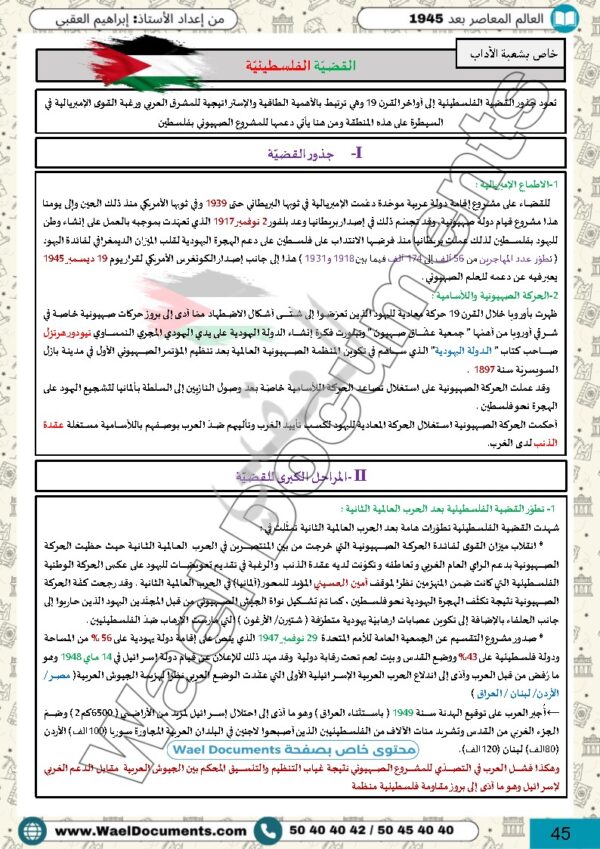 العالم المعاصر بعد 1945
من إعداد الأستاذ: إبراهيم العقبي
خاص بشعبة الآداب
القضيّة الفلسطينيّة
تعود جذور القضية الفلسطينية إلى أواخر القرن 19 وهي ترتبط بالأهمية الطاقية والإستراتيجية للمشرق العربي ورغبة القوى الإمبريالية في
السيطرة على هذه المنطقة ومن هنا يأتي دعمها للمشروع الصهيوني بفلسطين
I- جذور القضيّة
1-الاطماع الإمبريالية :
للقضاء على مشروع إقامة دولة عربية موحّدة دعمت الإمبريالية في ثوبها البريطاني حتى 1939 وفي ثوبها الأمريكي منذ ذلك الحين وإلى يومنا
هذا مشروع قيام دولة صهيونية. وقد تجسّم ذلك في إصدار بريطانيا وعد بلفور 2 نوفمبر 1917 الذي تعهّدت بموجبه بالعمل على إنشاء وطن
لليهود بفلسطين لذلك عملت بريطانيا منذ فرضها الانتداب على فلسطين على دعم الهجرة اليهودية لقلب الميزان الديمغرافي لفائدة اليهود
( تطوّر عدد المهاجرين من 56 ألف إلى 174 ألف فيما بين 1918 و 1931 ) هذا إلى جانب إصدار الكونغرس الأمريكي لقرار يوم 19 ديسمبر 1945
يعبر فيه عن دعمه للحلم الصهيوني.
2-الحركة الصهيونية واللاسامية :
ظهرت بأوروبا خلال القرن 19 حركة معادية لليهود الذين تعرّضوا إلى شتّى أشكال الاضطهاد ممّا أدى إلى بروز حركات صهيونية خاصة في
شرقي أوروبا من أهمّها " جمعية عشّاق صهيون " وتبلورت فكرة إنشاء الدولة اليهودية على يدي اليهودي المجري النمساوي تيودور هرتزل
صاحب كتاب " الدولة اليهودية" الذي ساهم في تكوين المنظمة الصهيونية العالمية بعد تنظيم المؤتمر الصهيوني الأول في مدينة بازل
السويسريّة سنة 1897 .
وقد عملت الحركة الصهيونية على استغلال تصاعد الحركة اللاسامية خاصّة بعد وصول النازيين إلى السلطة بألمانيا لتشجيع اليهود على
الهجرة نحو فلسطين .
أحكمت الحركة الصهيونية استغلال الحركة المعادية لليهود لكسب تأييد الغرب وتأليبهم ضدّ العرب بوصفهم باللاسامية مستغلة عقدة
الذنب لدى الغرب.
II -المراحل الكبرى للقضيّة
1- تطوّر القضية الفلسطينية بعد الحرب العالمية الثانية :
شهدت القضية الفلسطينية تطوّرات هامة بعد الحرب العالمية الثانية تمثّلت في:
* انقلاب ميزان القوى لفائدة الحركة الصهيونية التي خرجت من بين المنتصرين في الحرب العالمية الثانية حيث حظيت الحركة
الصهيونية بدعم الراي العام الغربي وتعاطفه وتكوّنت لديه عقدة الذنب والرغبة في تقديم تعويضات لليهود على عكس الحركة الوطنية
الفلسطينية التي كانت ضمن المنهزمين نظرا لموقف أمين الحسيني المؤيد للمحور(ألمانيا) في الحرب العالمية الثانية . وقد رجعت كفّة الحركة
الصهيونية نتيجة تكثّف الهجرة اليهودية نحو فلسطين ، كما تم تشكيل نواة الجيش الصهيوني من قبل المجنّدين اليهود الذين حاربوا إلى
جانب الحلفاء بالإضافة إلى تكوين عصابات إرهابيّة يهودية متطرفة ( شتيرن/ الأرغون ) التي مارست الإرهاب ضدّ الفلسطينيين .
* صدور مشروع التقسيم عن الجمعية العامة للأمم المتحدة 29 نوفمبر 1947 الذي ينص على إقامة دولة يهودية على 56 % من المساحة
ودولة فلسطينية على 43% ووضع القدس وبيت لحم تحت رقابة دولية وقد مهّد ذلك للإعلان عن قيام دولة إسرائيل في 14 ماي 1948 وهو
ما رُفض من قبل العرب وأدّى إلى اندلاع الحرب العربية الإسرائيلية الأولى التي عقّدت الوضع العربي نظرا لهزيمة الجيوش العربية( مصر/
الأردن/ لبنان / العراق )
←أُجبر العرب على توقيع الهدنة سنة 1949 ( باستثناء العراق ) وهو ما أدّى إلى احتلال إسرائيل لمزيد من الأراضي ( 6500كم2 ) وضمّ
الجزء الغربي من القدس وتشريد مئات الآلاف من الفلسطينيين الذين أصبحوا لاجئين في البلدان العربية المجاورة سوريا (100الف) الأردن
(80الف) لبنان (120الف).
محتوى خاص بصفحة Wael Documents
وهكذا فشل العرب في التصدّي للمشروع الصهيوني نتيجة غياب التنظيم والتنسيق المحكم بين الجيوش العربية مقابل الدعم الغربي
لإسرائيل وهو ما أدّى إلى بروز مقاومة فلسطينية منظمة
Wael Documents
www.WaelDocuments.com
50 40 40 42 / 50 45 40 40
45